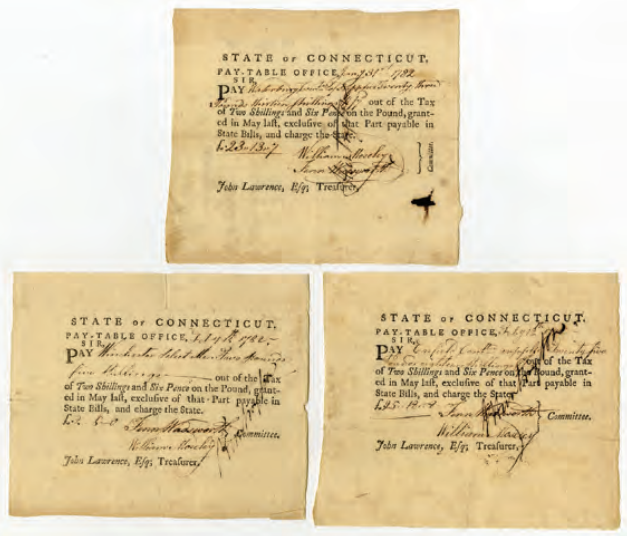 STATE OF CONNECTICUT.
PAY-TABLE OFFICE, 31st 1782
SIR,
PAY Twenty three
Pounds thirteen shillings out of the Tax
of Two Shillings and Six Pence on the Pound, grant-
ed in May last, exclusive of that Part payable in
State Bills, and charge the State.
£23-13-7 William Moseley
Fenn Wadsworth
Committee.
John Lawrence, Esq; Treasurer.
STATE OF CONNECTICUT.
PAY-TABLE OFFICE, 1782
SIR,
PAY Winchester Select Men Two Pounds
five Shillings out of the Tax
of Two Shillings and Six Pence on the Pound, grant-
ed in May last, exclusive of that Part payable in
State Bills, and charge the State.
Fenn Wadsworth
William Moseley
Committee.
John Lawrence, Esq; Treasurer.
STATE OF CONNECTICUT.
PAY-TABLE OFFICE,
SIR,
PAY Enfield Twenty five
out of the Tax
of Two Shillings and Six Pence on the Pound, grant-
ed in May last, exclusive of that Part payable in
State Bills, and charge the State.
Fenn Wadsworth
Committee.
William Moseley
John Lawrence, Esq; Treasurer.